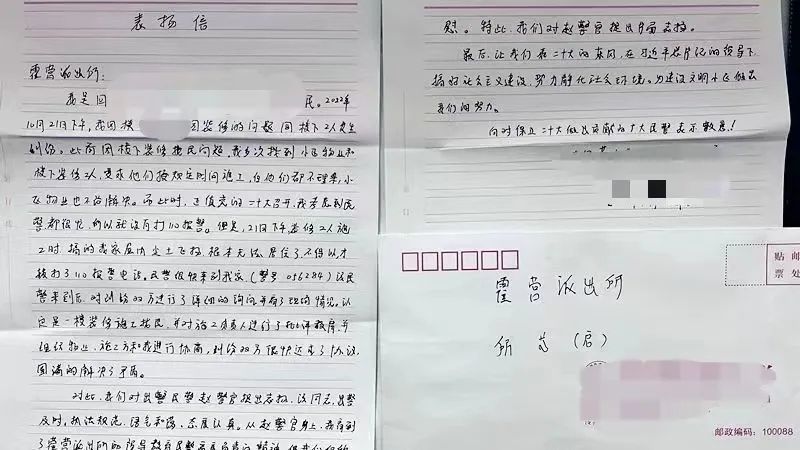 表扬信
霍营派出所:
我是回
民。2022年
10月21日下午,我因楼
因装修的问题同楼下工人发生
纠纷。此前因楼下装修扰民问题,我多次找到小区物业和
楼下装修工人,要求他们按规定时间施工,但他们都不理睬,小
区物业也不给解决。而此时,正值党的二十大召开,我考虑到民
警都很忙,所以就没有打110报警。但是,21日下午,装修工人施
工时,搞的我家屋内尘土飞扬,根本无法居住了,不得以才
拨打了110报警电话。民警很快来到我家,(警号056284)该民
警来到后,对纠纷双方进行了详细的询问并看了现场情况。认
定是一楼装修施工扰民,并对施工负责人进行了批评教育,并
组织物业、施工方和我进行协商,纠纷双方很快达成了协议,
圆满的解决了矛盾。
对此,我们对出警民警赵警官提出表扬,该同志,出警
及时,执法规范,语气和蔼,态度认真。从赵警官身上,我看到
了霍营派出所的领导教育民警
慰。特此,我们对赵警官提出口头表扬。
最后,让我们在二十大的东风,在习近平总书记的领导下,
搞好社会主义建设,努力静化社会环境。为建设文明小区做出
我们的努力。
向对保卫二十大做出贡献的广大民警表示敬意!
霍营派出所
所长(启)
贴邮
票处
邮政编码:100088